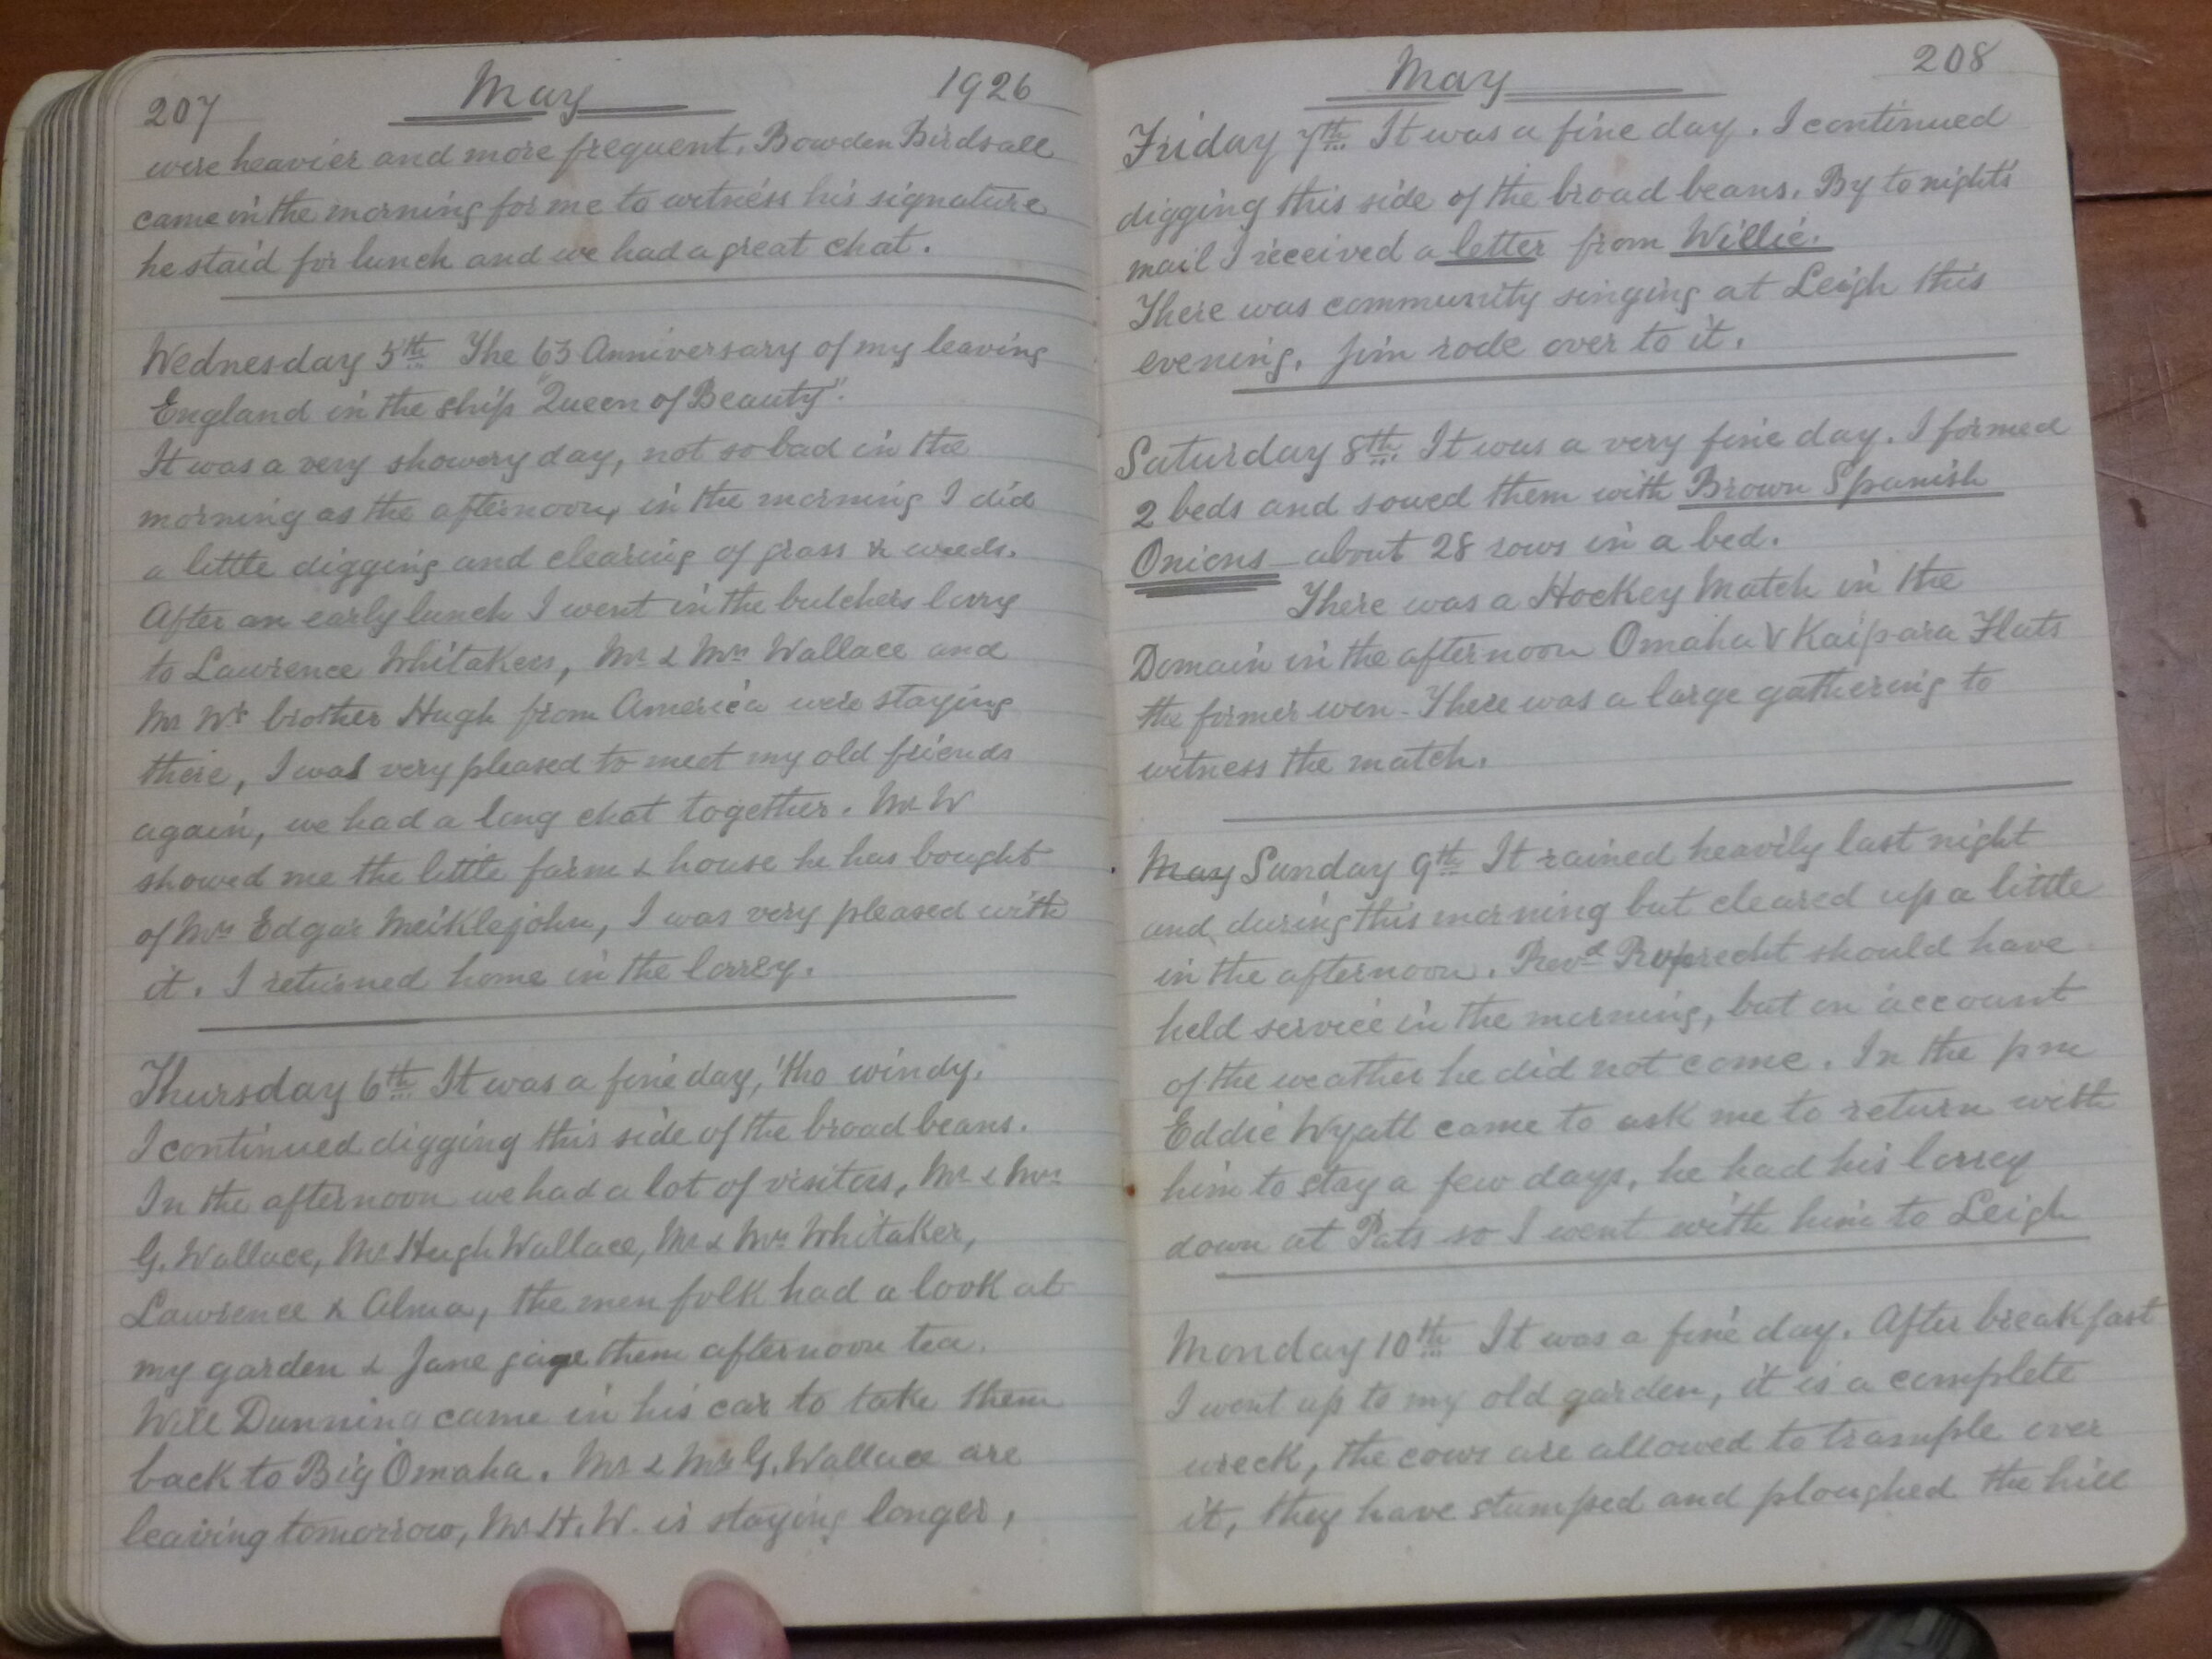 207 May 1926
were heavier and more frequent. Bowden Birdsall
came in the morning for me to witness his signature
he staid for lunch and we had a great chat.
Wednesday 5th The 63 Anniversary of my leaving
England in the ship "Queen of Beauty".
It was a very showery day, not so bad in the
morning as the afternoon, in the morning I did
a little digging and clearing of grass & weeds.
After an early lunch I went in the butchers lorry
to Lawrence Whitakers, Mr & Mrs Wallace and
Mr Ws brother Hugh from America were staying
there, I was very pleased to meet my old friends
again, we had a long chat together. Mr W
showed me the little farm & house he has bought
of Mrs Edgar Meiklejohn, I was very pleased with
it. I returned home in the lorrey.
Thursday 6th It was a fine day, 'tho windy.
I continued digging this side of the broad beans.
In the afternoon we had a lot of visitors, Mr & Mrs
G. Wallace, Mr Hugh Wallace, Mr & Mrs Whitaker,
Lawrence & Alma, the men folk had a look at
my garden & Jane gave them afternoon tea.
Will Dunning came in his car to take them
back to Big Omaha. Mr & Mrs G. Wallace are
leaving tomorrow, Mr H. W. is staying longer,
May 208
Friday 7th It was a fine day. I continued
digging this side of the broad beans. By to nights
mail I received a letter from Willie.
There was community singing at Leigh this
evening. Jim rode over to it.
Saturday 8th It was a very fine day. I formed
2 beds and sowed them with Brown Spanish
Onions about 28 rows in a bed.
There was a Hockey Match in the
Domain in the afternoon Omaha V Kaipara Flats
the former won. There was a large gathering to
witness the match.
May Sunday 9th It rained heavily last night
and during this morning but cleared up a little
in the afternoon. Revd Ruprecht should have
held service in the morning, but on account
of the weather he did not come. In the pm
Eddie Wyatt came to ask me to return with
him to stay a few days, he had his lorrey
down at Pats so I went with him to Leigh
Monday 10th It was a fine day. After breakfast
I went up to my old garden, it is a complete
wreck, the cows are allowed to trample over
it, they have stumped and ploughed the hill